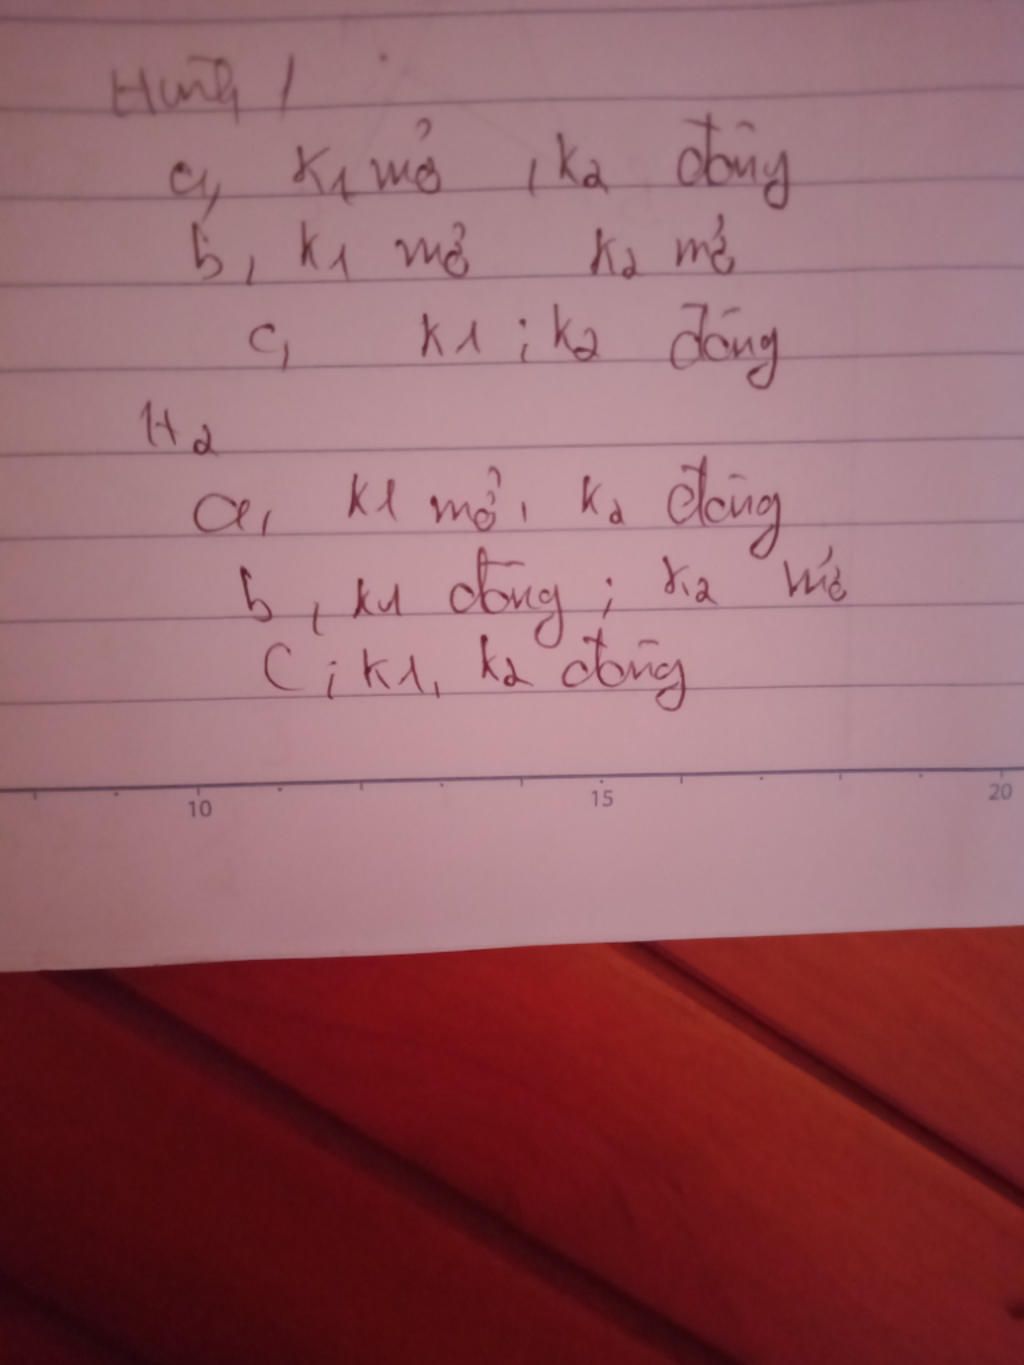 Hình 1
a, K1 mở , K2 đóng
b, K1 mở K2 mở
c, K1 ; K2 đóng
H2
a, K1 mở, K2 đóng
b, K1 đóng ; K2 mở
C ; K1, K2 đóng
10 15 20